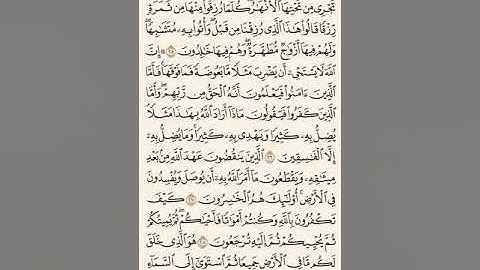 تَجْرِي مِن تَحْتِهَا ٱلْأَنْهَٰرُ كُلَّمَا رُزِقُوا۟ مِنْهَا مِن ثَمَرَةٍ
رِّزْقًا قَالُوا۟ هَٰذَا ٱلَّذِي رُزِقْنَا مِن قَبْلُ وَأُتُوا۟ بِهِۦ مُتَشَٰبِهًا
وَلَهُمْ فِيهَآ أَزْوَٰجٌ مُّطَهَّرَةٌ وَهُمْ فِيهَا خَٰلِدُونَ ۞ إِنَّ
ٱللَّهَ لَا يَسْتَحْيِۦٓ أَن يَضْرِبَ مَثَلًا مَّا بَعُوضَةً فَمَا فَوْقَهَا فَأَمَّا
ٱلَّذِينَ ءَامَنُوا۟ فَيَعْلَمُونَ أَنَّهُ ٱلْحَقُّ مِن رَّبِّهِمْ وَأَمَّا
ٱلَّذِينَ كَفَرُوا۟ فَيَقُولُونَ مَاذَآ أَرَادَ ٱللَّهُ بِهَٰذَا مَثَلًا
يُضِلُّ بِهِۦ كَثِيرًا وَيَهْدِي بِهِۦ كَثِيرًا وَمَا يُضِلُّ بِهِۦٓ
إِلَّا ٱلْفَٰسِقِينَ ٱلَّذِينَ يَنقُضُونَ عَهْدَ ٱللَّهِ مِنۢ بَعْدِ
مِيثَٰقِهِۦ وَيَقْطَعُونَ مَآ أَمَرَ ٱللَّهُ بِهِۦٓ أَن يُوصَلَ وَيُفْسِدُونَ
فِي ٱلْأَرْضِ أُو۟لَٰٓئِكَ هُمُ ٱلْخَٰسِرُونَ كَيْفَ
تَكْفُرُونَ بِٱللَّهِ وَكُنتُمْ أَمْوَٰتًا فَأَحْيَٰكُمْ ثُمَّ يُمِيتُكُمْ
ثُمَّ يُحْيِيكُمْ ثُمَّ إِلَيْهِ تُرْجَعُونَ هُوَ ٱلَّذِي خَلَقَ
لَكُم مَّا فِي ٱلْأَرْضِ جَمِيعًا ثُمَّ ٱسْتَوَىٰٓ إِلَى ٱلسَّمَآءِ